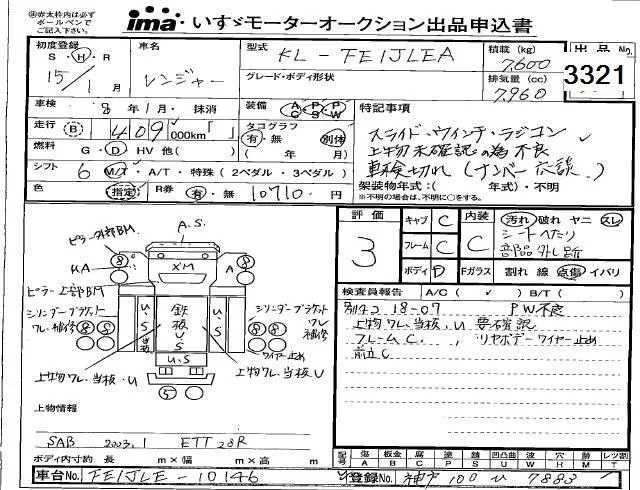 ㊟赤太枠内は必ず
ボールペンで
ご記入下さい。
ima いすゞモーターオークション出品申込書
初度登録 S・H・R 15/1月
車名 レンジャー
型式 KL-FE1JLEA
グレード・ボディ形状
積載 (kg) 7,600
排気量 (cc) 7,960
出品No. 3321
車検 8年1月・抹消
装備 AC・PS・PW
走行 (B) 409,000km「 」
タコグラフ 有・無 別体 ( 年 月)
燃料 G・D・HV 他( )
シフト 6 M/T・A/T・特殊(2ペダル・3ペダル)
色 (指定) R券 有・無 10710円
特記事項
スライド・ウィンチ・ラジコン
上物未確認の為不良
車検切れ(ナンバー応談)
架装物年式:( 年式)・不明
※所有の場合は、不明に○をする。
評価 3
キャブ C
フレーム C
ボディ D
内装 C
汚れ 破れ ヤニ スレ
シートへたり
部品外し跡
Fガラス 割れ 線 点傷 イバリ
検査員報告 A/C( ✓ ) B/T( )
別チコ 18-07 PW不良
上物ワレ、当板、U 要確認
フレームC、 リヤボデーワイヤー止め
前立C
A.S.
ピラー外部BM
KA
XM
A
ピラー上部BM
シリンダーブラケットワレ補修
U.S
鉄板US
U.S
シリンダーブラケットワレ補修
ワイヤー止め
U.S
上物ワレ、当板・U
上物ワレ、当板U
上物情報
SAB 2003.1 ETT28R
ボディ内寸約 長 m×幅 m×高 m
記号 傷A 板金B 腐C 塗P 錆S 凹凸U 凸W 穴H 跡M レツ割T
車台No. FE1JLE-10146
登録No. 神戸 100 い 7883